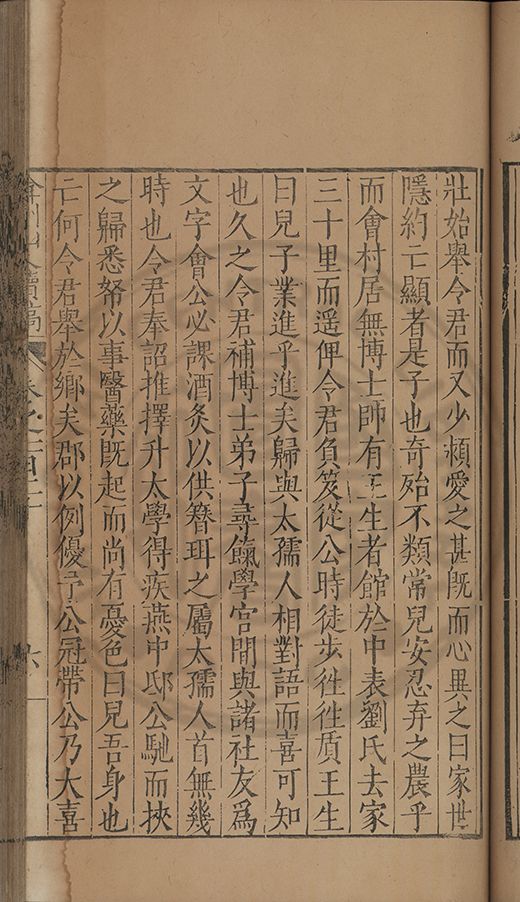 壯始舉令君而又少頫愛之甚既而心異之曰家世
隱約亡顯者是子也奇殆不類常兒安忍弃之農乎
而會村居無博士師有王生者館於中表劉氏去家
三十里而遥俾令君負笈從公時徒步徃徃質王生
曰兒子業進乎進矣歸與太孺人相對語而喜可知
也久之令君補博士弟子尋餼學宮間與諸社友爲
文字會公必課酒炙以供簪珥之屬太孺人首無幾
時也令君奉詔推擇升太學得疾燕中邸公馳而挾
之歸悉帑以事醫藥既起而尚有憂色曰兒吾身也
亡何令君舉於鄉矣郡以例優予公冠帶公乃大喜
弇州山人續稿 卷之一百
六